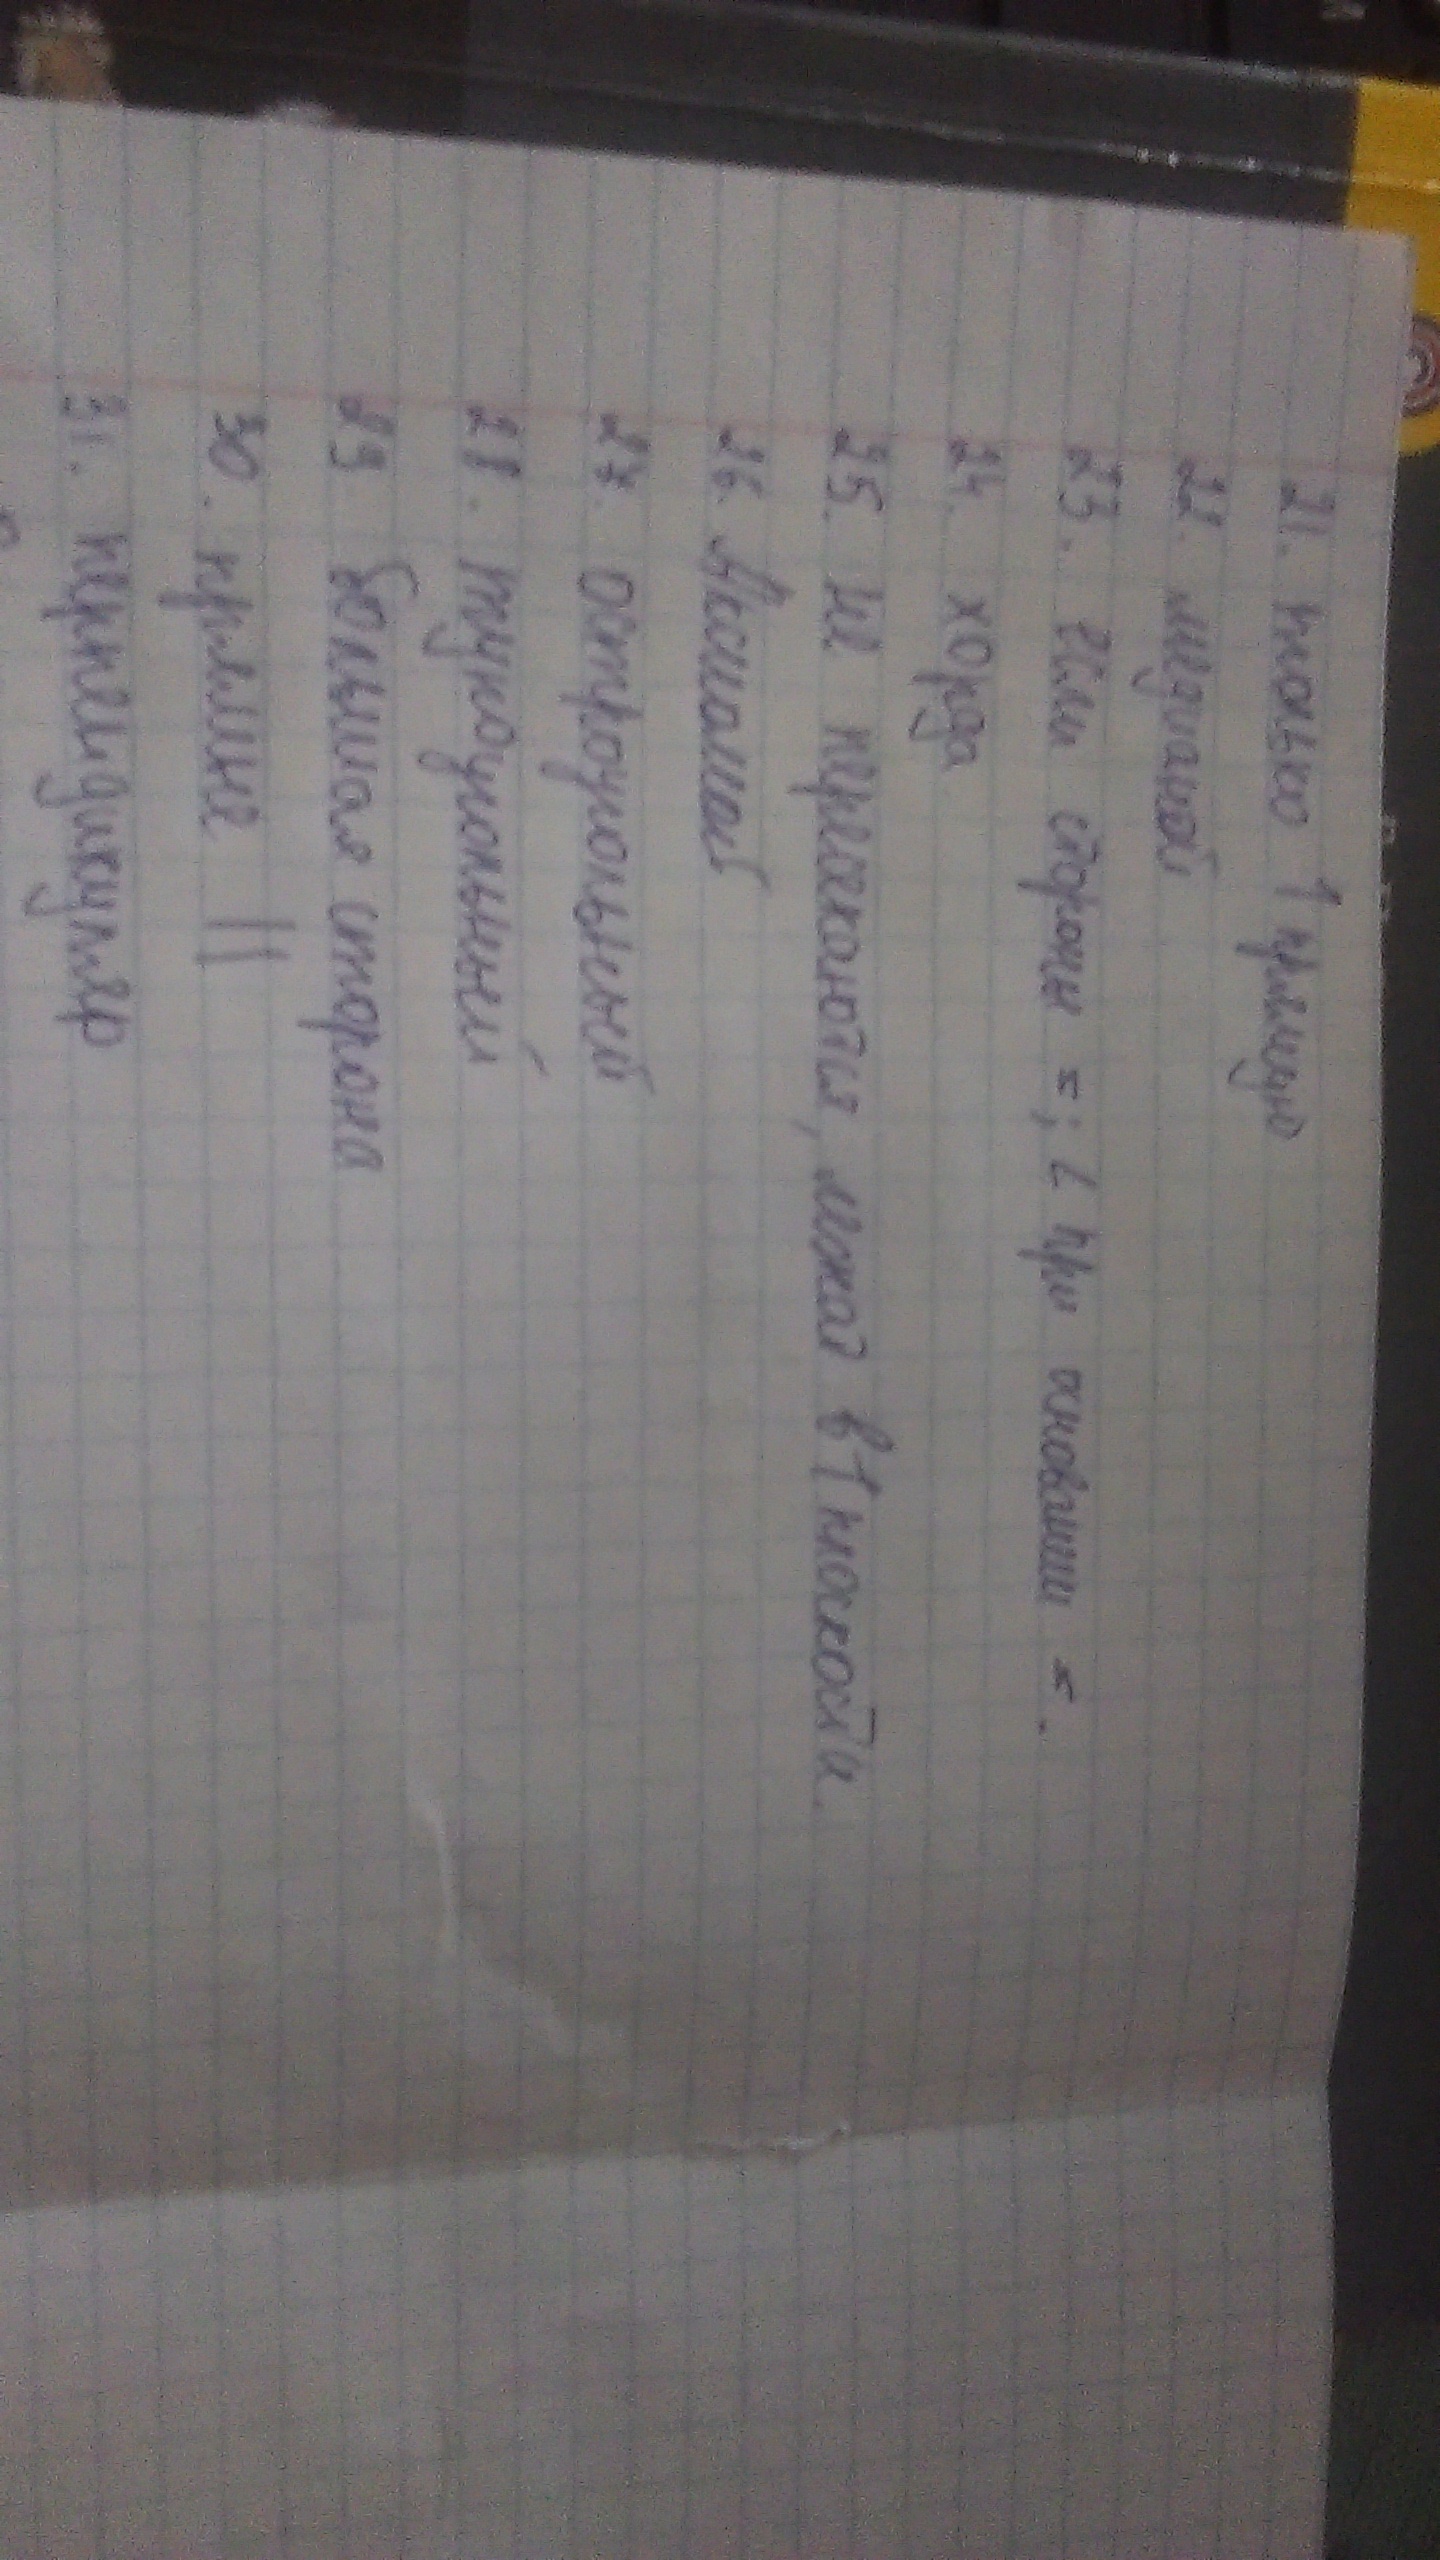 21. только 1 прямую
22. медианой
23. Если стороны =; ∠ при основании =.
24. хорда
25. не пересекаются, лежат в 1 плоскости.
26. Высотой
27. остроугольный
28. тупоугольный
29 большая сторона
30. прямые ||
31. перпендикуляр